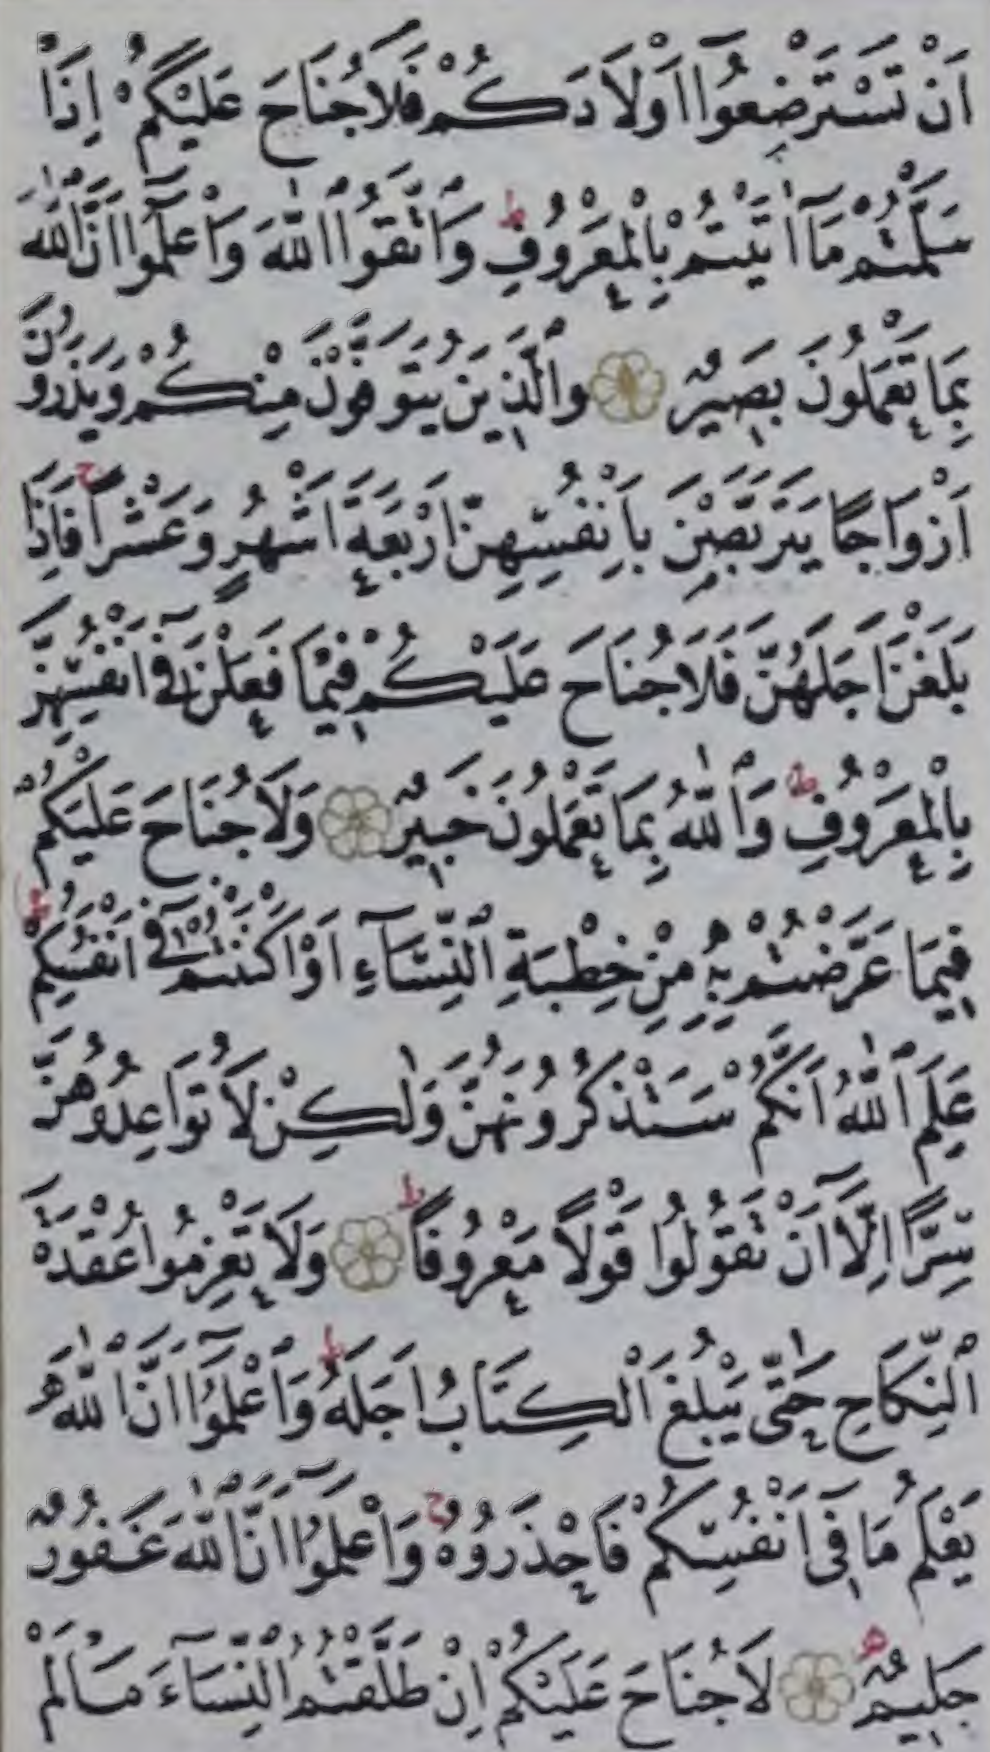 اَنْ تَسْتَرْضِعُوا اَوْلَادَكُمْ فَلَا جُنَاحَ عَلَيْكُمْ اِذَا
سَلَّمْتُمْ مَٓا اٰتَيْتُمْ بِالْمَعْرُوفِۜ وَاتَّقُوا اللّٰهَ وَاعْلَمُٓوا اَنَّ اللّٰهَ
بِمَا تَعْمَلُونَ بَصِيرٌ ۝ وَالَّذِينَ يُتَوَفَّوْنَ مِنْكُمْ وَيَذَرُونَ
اَزْوَاجًا يَتَرَبَّصْنَ بِاَنْفُسِهِنَّ اَرْبَعَةَ اَشْهُرٍ وَعَشْرًاۚ فَاِذَا
بَلَغْنَ اَجَلَهُنَّ فَلَا جُنَاحَ عَلَيْكُمْ فِيمَا فَعَلْنَ فِٓي اَنْفُسِهِنَّ
بِالْمَعْرُوفِۜ وَاللّٰهُ بِمَا تَعْمَلُونَ خَبِيرٌ ۝ وَلَا جُنَاحَ عَلَيْكُمْ
فِيمَا عَرَّضْتُمْ بِهِ مِنْ خِطْبَةِ النِّسَٓاءِ اَوْ اَكْنَنْتُمْ فِٓي اَنْفُسِكُمْۜ
عَلِمَ اللّٰهُ اَنَّكُمْ سَتَذْكُرُونَهُنَّ وَلٰكِنْ لَا تُوَاعِدُوهُنَّ
سِرًّا اِلَّٓا اَنْ تَقُولُوا قَوْلًا مَعْرُوفًاۜ ۝ وَلَا تَعْزِمُوا عُقْدَةَ
النِّكَاحِ حَتّٰى يَبْلُغَ الْكِتَابُ اَجَلَهُۜ وَاعْلَمُٓوا اَنَّ اللّٰهَ
يَعْلَمُ مَا فِٓي اَنْفُسِكُمْ فَاحْذَرُوهُۚ وَاعْلَمُٓوا اَنَّ اللّٰهَ غَفُورٌ
حَلِيمٌ ۝ لَا جُنَاحَ عَلَيْكُمْ اِنْ طَلَّقْتُمُ النِّسَٓاءَ مَا لَمْ